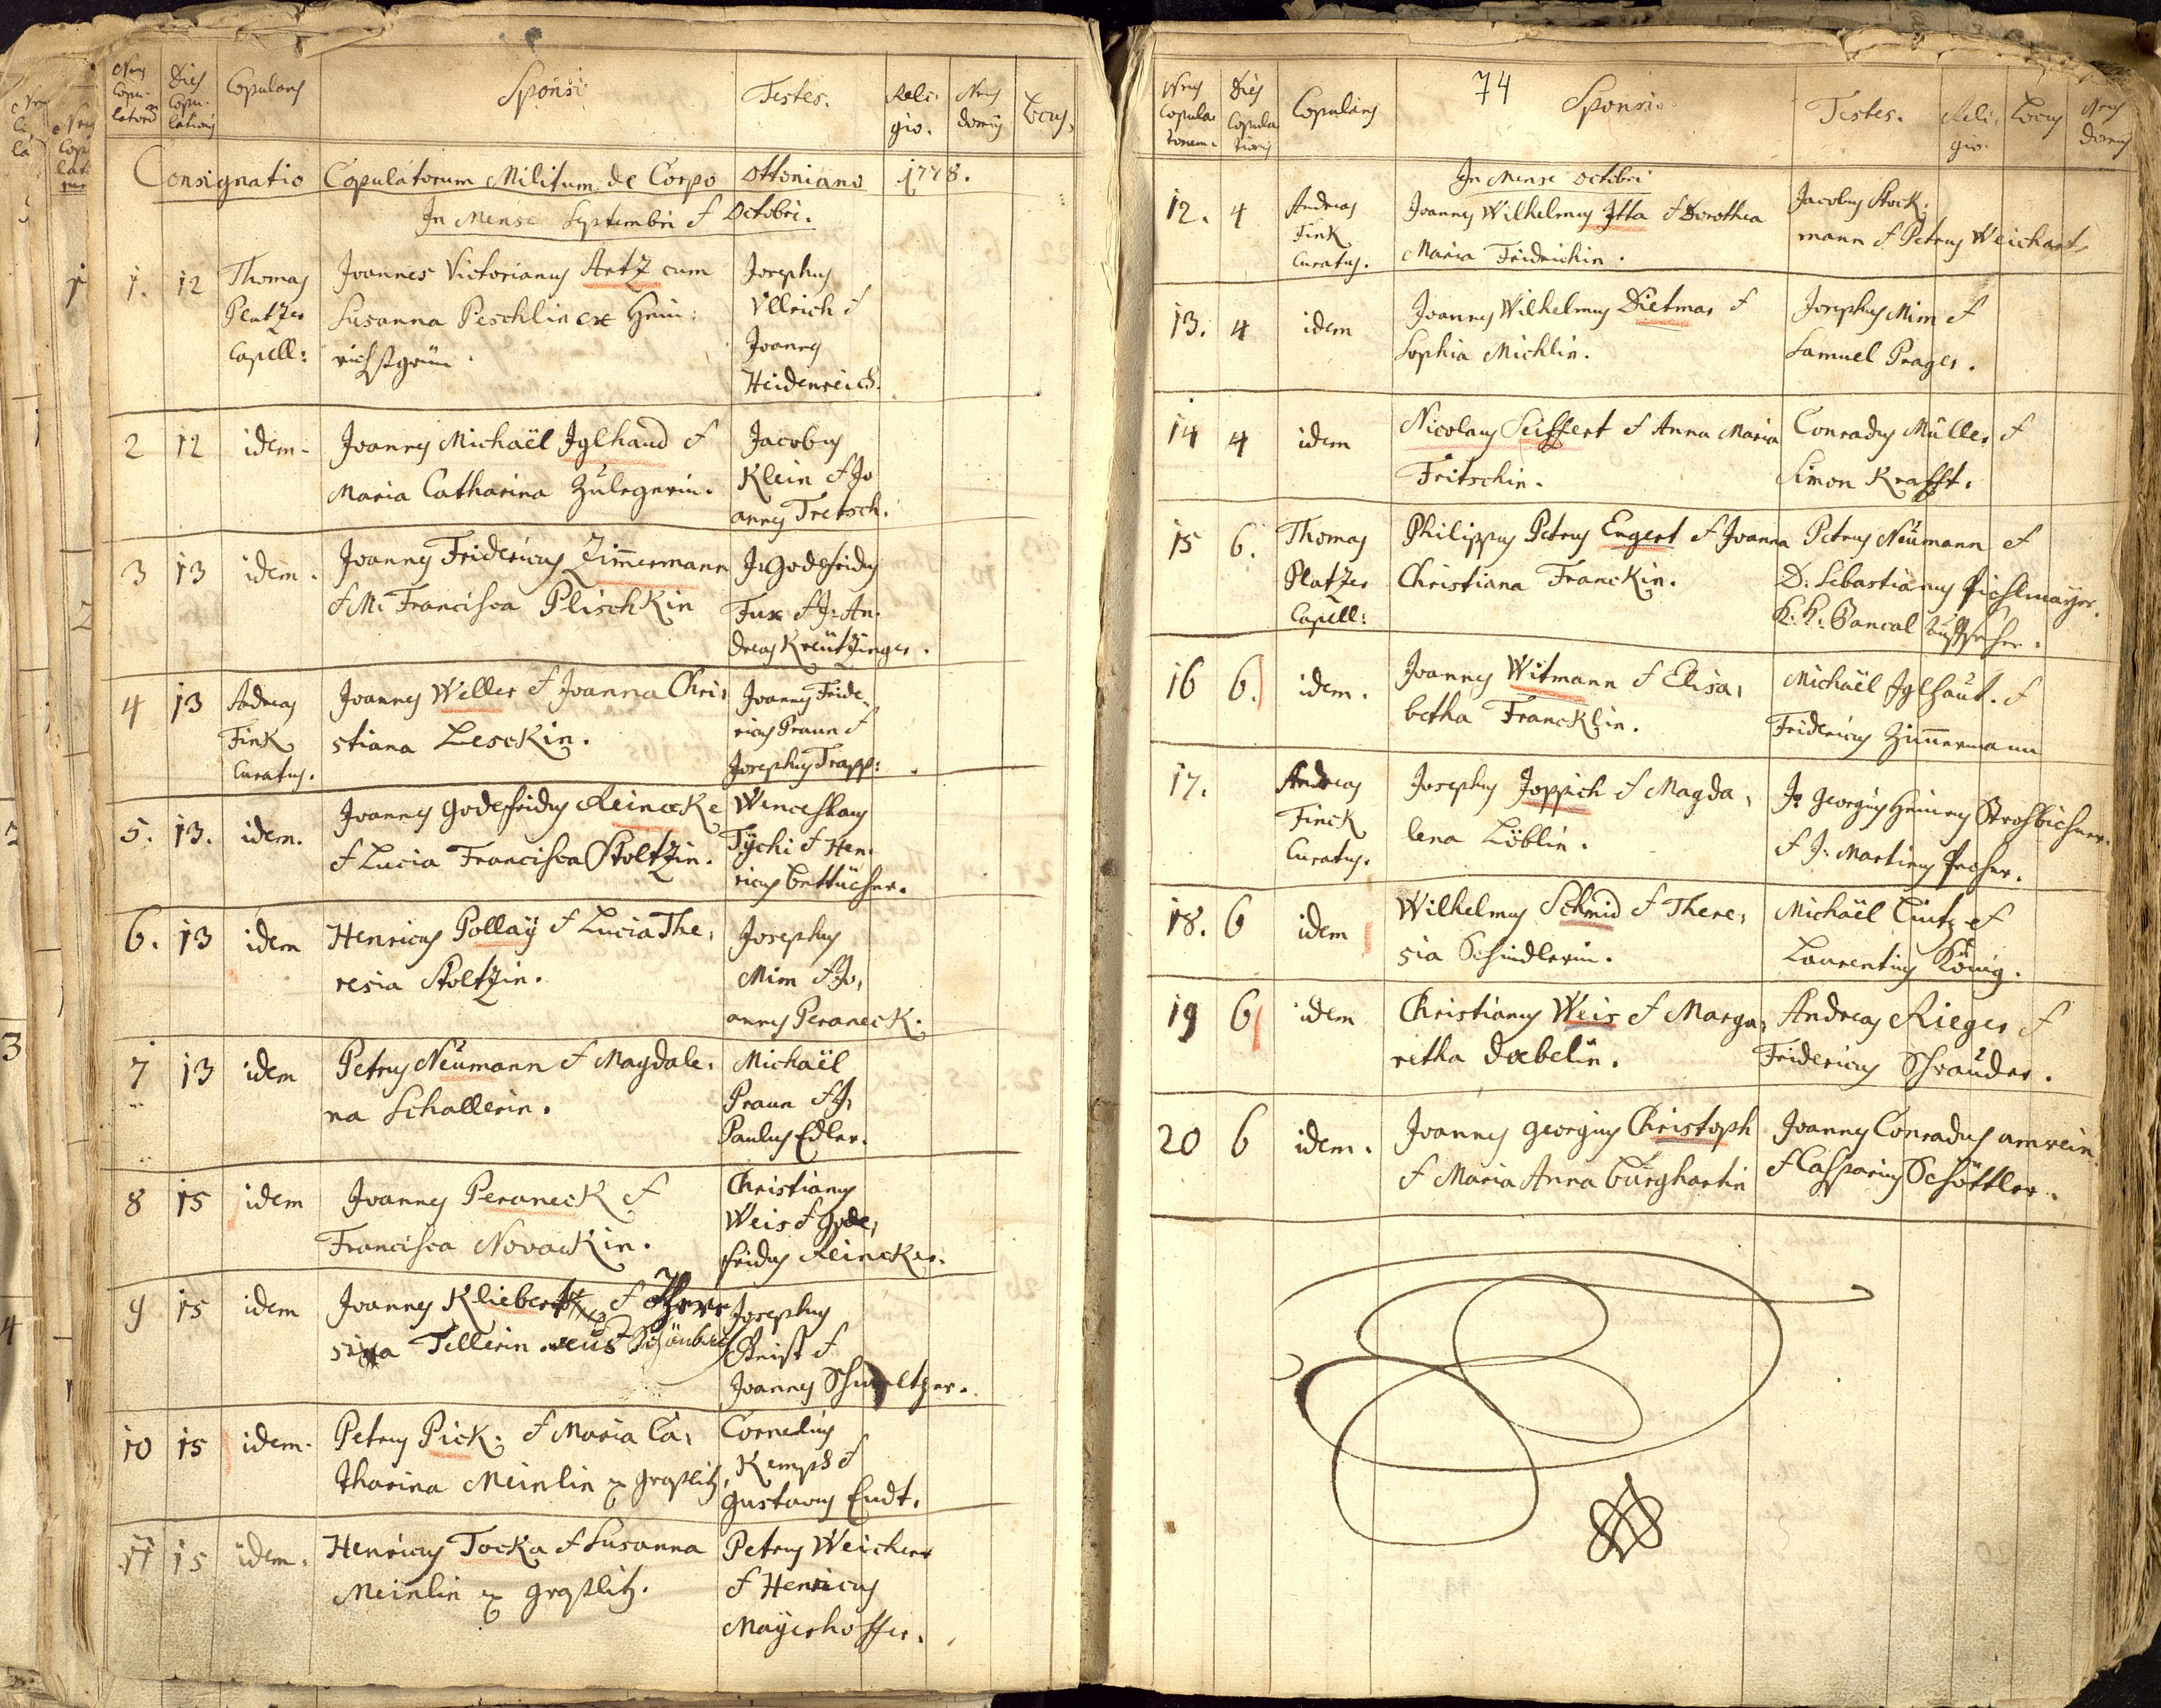 Nrus Copulatorum
Dies Copulationis
Copulans
Sponsi
Testes.
Religio.
Nrus domus
Locus.
Consignatio Copulatorum Militum de Corpo Ottoniano 1778.
In Mense Septembri & Octobri.
1. 12 Thomas Platzer Capell:
Joannes Victorianus Artz cum
Susanna Peschlin ex Hein:
richsgrün.
Josephus
Ullrich &
Joannes
Heidenreich.
2 12 idem.
Joannes Michaël Jglhaud &
Maria Catharina Zülegerin.
Jacobus
Klein & Jo
annes Tretsch.
3 13 idem.
Joannes Fridericus Zimmermann
& M: Francisca Plischkin
J: Godefridus
Fux & J: An.
dreas Kreützinger.
4 13 Andreas Fink Curatus.
Joannes Weller & Joanna Chri,
stiana Lesckin.
Joannes Fride,
ricus Praun &
Josephus Trapp:
5. 13. idem.
Joannes Godefridus Reinecke
& Lucia Francisca Stoltzin.
Wenceslaus
Tÿchi & Hen.
ricus
6. 13 idem
Henricus Pollaÿ & Lucia The,
resia Stoltzin.
Josephus
Mim & Jo,
annes Peraneck.
7 13 idem
Petrus Neümann & Magdale,
na Schallerin.
Michaël
Praun & J,
Paulus Edler.
8 15 idem
Joannes Peraneck &
Francisca Novackin.
Christianus
Weis & Gode,
fridus Reincker.
9 15 idem
Joannes Kliebert & There
sia Tellerin aus Schönbach
Josephus
Christ &
Joannes Schmeltzer.
10 15 idem.
Petrus Pick. & Maria Ca,
tharina Meinlin ex Graßlitz.
Cornelius
Kempf &
Gustavus Endt.
11 15 idem.
Henricus Tocka & Susanna
Meinlin ex Graßlitz.
Petrus Weichert
& Henricus
Maÿerhoffer.
74
Nrus Copulatorum.
Dies Copulationis
Copulans
Sponsi
Testes.
Religio.
Locus
Nrus domus
In Mense Octobri
12. 4 Andreas Fink Curatus.
Joannes Wilhelmus Jtta & Dorothea
Maria Fridrichin.
Jacobus Stock,
mann & Petrus Weichart
13. 4 idem
Joannes Wilhelmus Dietmar &
Sophia Michlin.
Josephus Mim &
Samuel Prager.
14 4 idem
Nicolaus Seiffert & Anna Maria
Fritschin.
Conradus Müller &
Simon Krafft.
15 6. Thomas Platzer Capell:
Philippus Petrus Engert & Joanna
Christiana Franckin.
Petrus Neümann &
D: Sebastianus Pichlmayer.
K: K: Bancal Aufseher.
16 6. idem.
Joannes Witmann & Elisa,
betha Francklin.
Michaël Jglhaut. &
Fridericus Zimmermann
17. Andreas Finck Curatus.
Josephus Joppich & Magda,
lena Löblin.
J: Georgius Heinrus Strohbichner.
& J: Martinus Pecher.
18. 6 idem
Wilhelmus Schmid & There,
sia Schindlerin.
Michaël Lintz &
Laurentius König.
19 6 idem
Christianus Weis & Marga,
retha Dœbelin.
Andreas Rieger &
Fridericus Schrauder.
20 6 idem.
Joannes Georgius Christoph
& Maria Anna Burghartin
Joannes Conradus Amrein.
& Casparius Schöttler.